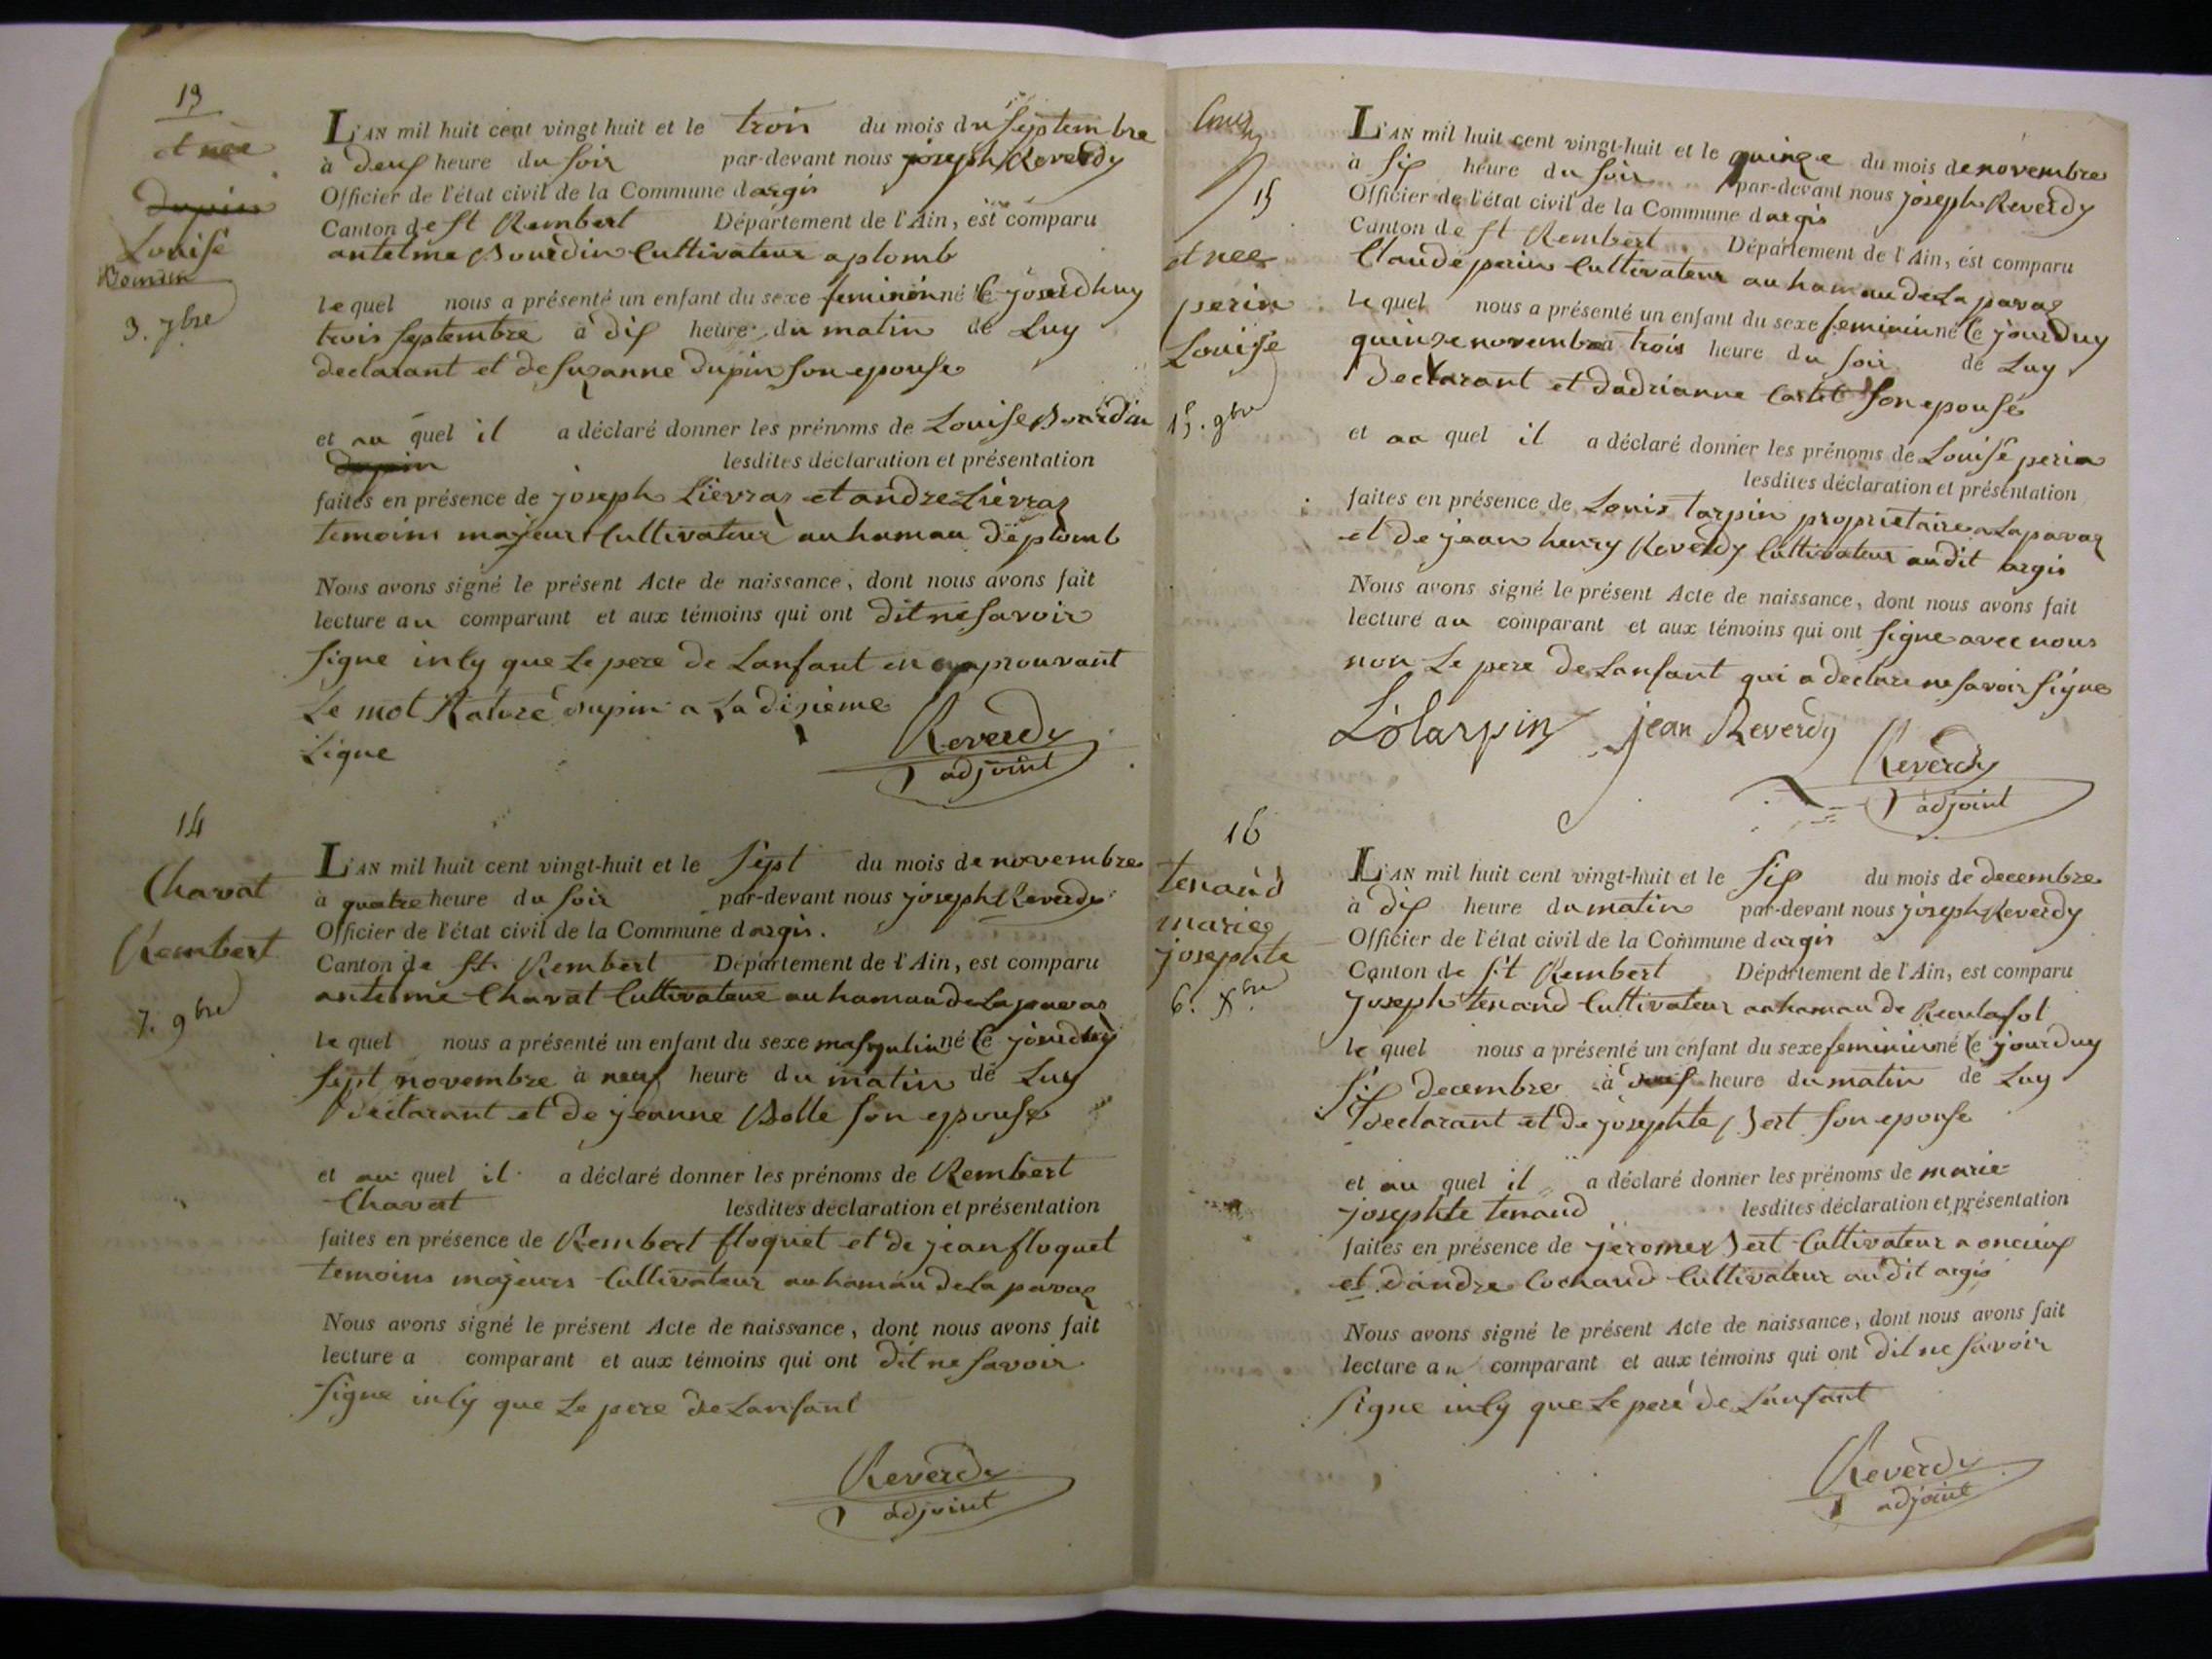 13
et née
Dupin
Louise
Bourdin
3. 7bre
L'AN mil huit cent vingt huit et le trois du mois du Septembre
à deux heure du soir par-devant nous joseph Reverdy
Officier de l'état civil de la Commune dargis
Canton de st Rembert Département de l'Ain, est comparu
antelme Bourdin Cultivateur a plomb
le quel nous a présenté un enfant du sexe feminin né le jourdhuy
trois septembre à dix heure du matin de Luy
declarant et de suzanne dupin son epouse
et au quel il a déclaré donner les prénoms de Louise Bourdin
dupin lesdites déclaration et présentation
faites en présence de joseph Lievraz et andre Lievraz
temoins majeur Cultivateur au hamau deplomb
Nous avons signé le présent Acte de naissance, dont nous avons fait
lecture au comparant et aux témoins qui ont dit ne savoir
signe insy que Le pere de Lanfant en approuvant
Le mot Raturé dupin a La dixieme
Ligne
Reverdy
adjoint
14
Chavat
Rembert
7. 9bre
L'AN mil huit cent vingt-huit et le sept du mois de novembre
à quatre heure du soir par-devant nous joseph Reverdy
Officier de l'état civil de la Commune dargis.
Canton de st. Rembert Département de l'Ain, est comparu
antelme Chavat Cultivateur au hamau de La pavaz
le quel nous a présenté un enfant du sexe masqulin né le jourdhuy
sept novembre à neuf heure du matin de Luy
declarant et de jeanne Bolle son epouse
et au quel il a déclaré donner les prénoms de Rembert
Chavat lesdites déclaration et présentation
faites en présence de Rembert floquet et de jean floquet
temoins majeurs Cultivateur au hamau de La pavaz
Nous avons signé le présent Acte de naissance, dont nous avons fait
lecture a comparant et aux témoins qui ont dit ne savoir
signe insy que Le pere de Lanfant
Reverdy
adjoint
15
et nee
perin
Louise
15. 9bre
L'AN mil huit cent vingt-huit et le quinze du mois de novembre
à six heure du soir par-devant nous joseph Reverdy
Officier de l'état civil de la Commune dargis
Canton de st Rembert Département de l'Ain, est comparu
Claude perin Cultivateur au hamau de La pavaz
le quel nous a présenté un enfant du sexe feminin né le jourduy
quinze novembre à trois heure du soir de Luy
declarant et dadrianne Castel son epouse
et au quel il a déclaré donner les prénoms de Louise perin
lesdites déclaration et présentation
faites en présence de Louis tarpin proprietaire a La pavaz
et de jean henry Reverdy Cultivateur au dit argis
Nous avons signé le présent Acte de naissance, dont nous avons fait
lecture au comparant et aux témoins qui ont signe avec nous
non Le pere de Lanfant qui a declare ne savoir signe
Ls tarpin jean Reverdy
Reverdy
adjoint
16
tenand
marie
josephte
6. Xbre
L'AN mil huit cent vingt-huit et le six du mois de decembre
à dix heure du matin par-devant nous joseph Reverdy
Officier de l'état civil de la Commune dargis
Canton de st Rembert Département de l'Ain, est comparu
joseph tenand Cultivateur au hamau de Reculafol
le quel nous a présenté un enfant du sexe feminin né le jourduy
six decembre à heure du matin de Luy
declarant et de josephte Bert son epouse
et au quel il a déclaré donner les prénoms de marie
josephte tenand lesdites déclaration et présentation
faites en présence de jerome Bert Cultivateur a oncieux
et dandre Cochand Cultivateur au dit argis
Nous avons signé le présent Acte de naissance, dont nous avons fait
lecture au comparant et aux témoins qui ont dit ne savoir
signe insy que Le pere de Lanfant
Reverdy
adjoint